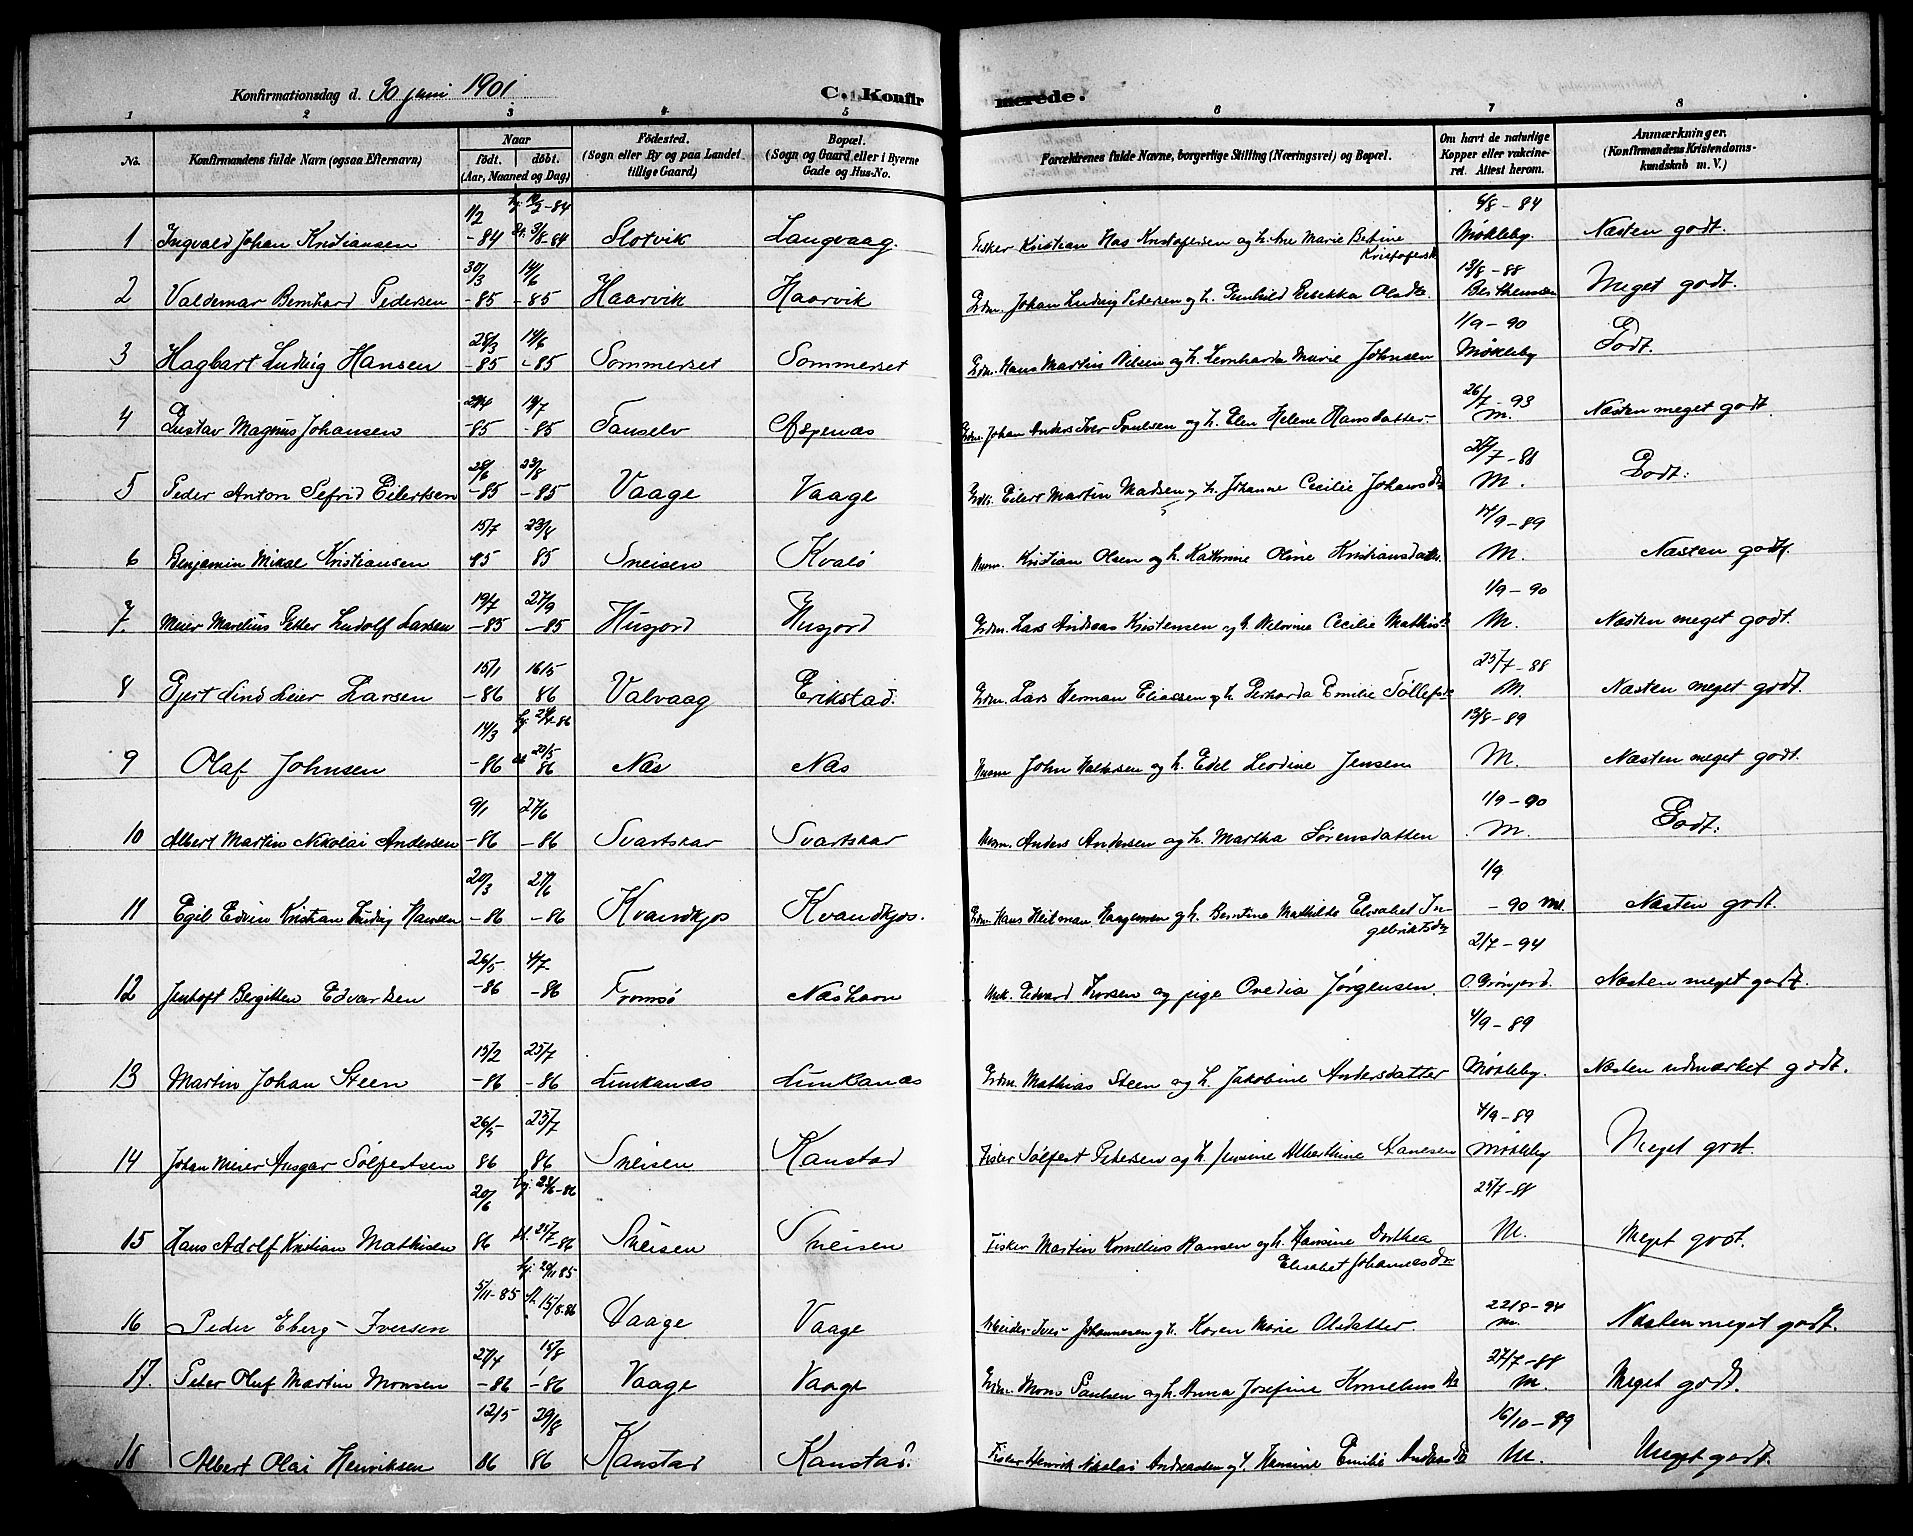 Konfirmationsdag d. 30 juni 1901
C. Konfirmerede.
1 2 3 4 5 6 7 8
No.
Konfirmandens fulde Navn (ogsaa Efternavn)
Naar
født. døbt.
(Aar, Maaned og Dag)
Fødested.
(Sogn eller By og paa Landet tillige Gaard)
Bopæl.
(Sogn og Gaard eller i Byerne Gade og Hus-No.
Forældrenes fulde Navne, borgerlige Stilling (Næringsvei) og Bopæl.
Om havt de naturlige Kopper eller vakcineret. Attest herom.
Anmærkninger.
(Konfirmandens Kristendomskundskab m. V.)
1 Ingvald Johan Kristiansen 1/2 -84 3/8-84 Slotvik Langvaag. Fisker Kristian Has Kristofersen og h. Ane Marie Betine Kristofersd 6/8-84 Møkleby Næsten godt.
2 Valdemar Bernhard Pedersen 30/3 -85 14/6 -85 Haarvik Haarvik Grdm. Johan Ludvig Pedersen og h. Gunhild Rebekka Olsdtr. 13/8-88 Berthensen Meget godt.
3 Hagbart Ludvig Hansen 28/3 -85 14/6 -85 Sommerset Sommerset Grdm. Hans Martin Nilsen og h. Leonharda Marie Johnsen 1/9-90 Møkleby Godt.
4 Gustav Magnus Johansen -85 -85 Tanselv Aspenæs Grdm. Johan Anders Iver Poulsen og h. Elen Helene Hansdatter 26/7-93 M. Næsten meget godt.
5 Peder Anton Sefrid Eilertsen 28/6 -85 23/8 -85 Vaage Vaage Eilert Martin Madsen og h. Johanne Cecilie Johansdr 24/7-88 M. Godt.
6 Benjamin Mikal Kristiansen 15/7 85 23/8 85 Sneisen Kvalø Husm. Kristian Olsen og h. Kathrine Oline Kristiansdatter 14/9-89 M. Næsten godt.
7. Meier Marelius Petter Ludolf Larsen 19/7 -85 27/9 -85 Husjord Husjord Grdm. Lars Andreas Kristensen og h. Nilsine Cecilie Mathisd 1/9-90 M. Næsten meget godt.
8 Gjert Lind Leier Larsen 15/1 -86 16/5 86 Valvaag Erikstad. Grdm. Lars Herman Eliassen og h. Gerharda Emilie Tollefsd 25/7-88 M. Næsten meget godt.
9 Olaf Johnsen 14/3 -86 23/5 86 Næs Næs Husm John Halvorsen og h. Edel Leodine Jensen 13/8-89 M. Næsten meget godt.
10 Albert Martin Nikolai Andersen 9/1 -86 27/6 -86 Svartskar Svartskar Husm. Anders Andersen og h. Martha Sørensdatter 1/9-90 M. Godt.
11 Egil Edvin Kristian Ludvig Hansen 20/3 -86 27/6 -86 Kvandkjos Kvandkjos. Grdm. Hans Heitman Haagensen og h. Berntine Mathilde Elisabet Ingebriktsdr 1/9 -90 Næsten godt.
12 Jentoft Bergitten Edvardsen 26/5 -86 4/7 -86 Tromsø Næshavn Unk. Edvard Iversen og pige Ovedia Jørgensen. 2/7-94 O. Grønjord. Næsten meget godt.
13 Martin Johan Steen 15/2 -86 25/7 -86 Lunkanæs Lunkanæs Grdm. Mathias Steen og h. Jakobine Andersdatter 4/9-89 Møkleby. Næsten udmærket godt.
14 Johan Meier Ansgar Solfertsen 26/5 86 25/7 86 Sneisen Kanstad Fisker Solfert Petersen og h. Jensine Albertine Hansen 4/9-89 Møkleby Meget godt.
15 Hans Adolf Kristian Mathisen 20/6 86 25/7-86 Sneisen Sneisen Fisker Martin Kornelius Hansen og h. Hansine Dorthea Elisabet Johannesdr 25/7-88 M. Meget godt.
16 Peder Eberg Iversen 5/11-85 15/8-86 Vaage Vaage Arbeider Iver Johannesen og h. Karen Marie Olsdatter. 22/8-94 M. Næsten meget godt.
17. Peter Oluf Martin Monsen 27/4 -86 15/8 -86 Vaage Vaage Grdm. Mons Paulsen og h. Anna Josefine Kornelius dr 27/7-88 M. Meget godt.
18 Albert Olai Henriksen 12/5 86 29/8 86 Kanstad Kanstad. Fisker Henrik Nikolai Andreassen og h. Hermine Emilie Andreasdr 16/10-89 M. Meget godt.